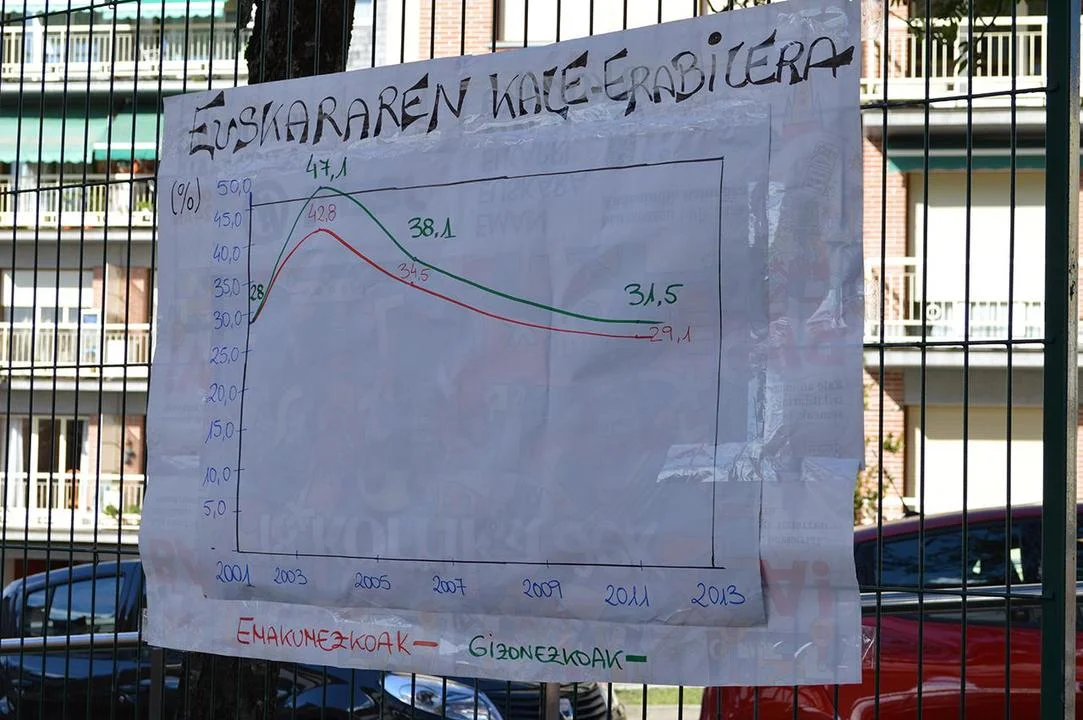 EUSKARAREN KALE-ERABILERA
(%)
50,0
45,0
40,0
35,0
30,0
25,0
20,0
15,0
10,0
5,0
-
47,1
42,8
38,1
34,5
28
31,5
29,1
2001 2003 2005 2007 2009 2011 2013
EMAKUMEZKOAK – GIZONEZKOAK –